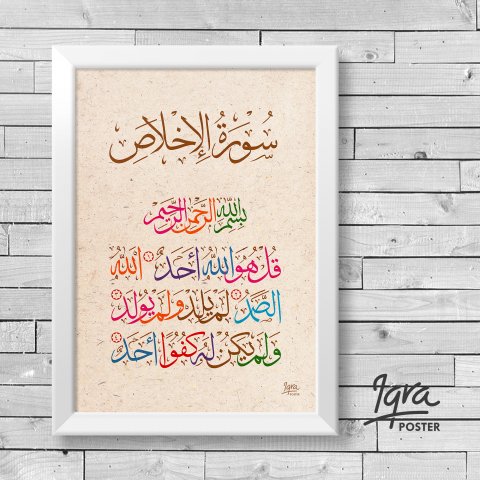 سُورَةُ الإِخْلَاصِ
بِسْمِ اللّٰهِ الرَّحْمٰنِ الرَّحِيمِ
قُلْ هُوَ اللّٰهُ أَحَدٌ ۝١ اَللّٰهُ
الصَّمَدُ ۝٢ لَمْ يَلِدْ وَلَمْ يُولَدْ ۝٣
وَلَمْ يَكُنْ لَهُ كُفُوًا أَحَدٌ ۝٤
Iqra
POSTER
Iqra
POSTER